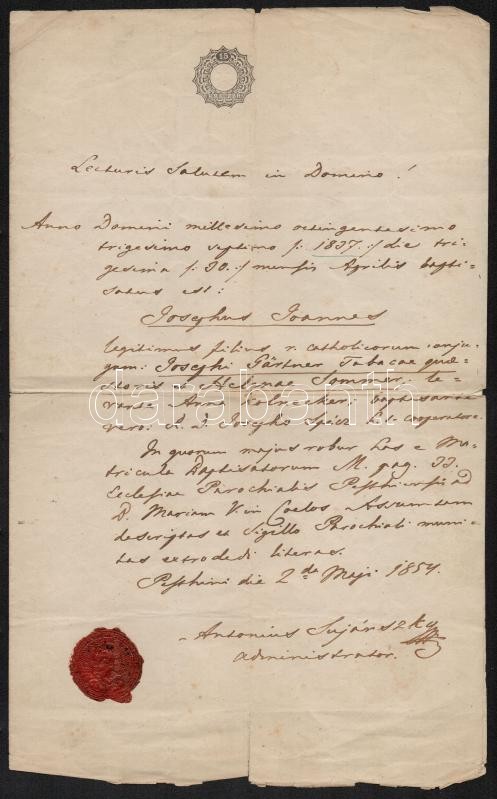 15
Lecturis Salutem in Domino!
Anno Domini millesimo octingentesimo
trigesimo septimo /: 1837. :/ die tri-
gesima /: 30. :/ mensis Aprilis bapti-
satus est:
Josephus Joannes
legitimus filius r. catholicorum conju-
gum: Josephi Gärtner Tabacae quae-
storis et Helenae Sommer. le-
vante Anna
vero: A. D. Josepho Spécz L. C. Cooperatore.
In quorum majus robur has e Ma-
tricula Baptisatorum M. pag. 33.
Ecclesiae Parochialis Pesthiensis ad
D. Mariam V. in Coelos Assumtam
descriptas et Sigillo Parochiali muni-
tas extradedi literas.
Pesthini die 2da Maji 1854.
Antonius Sujánszky
administrator.
darabanth